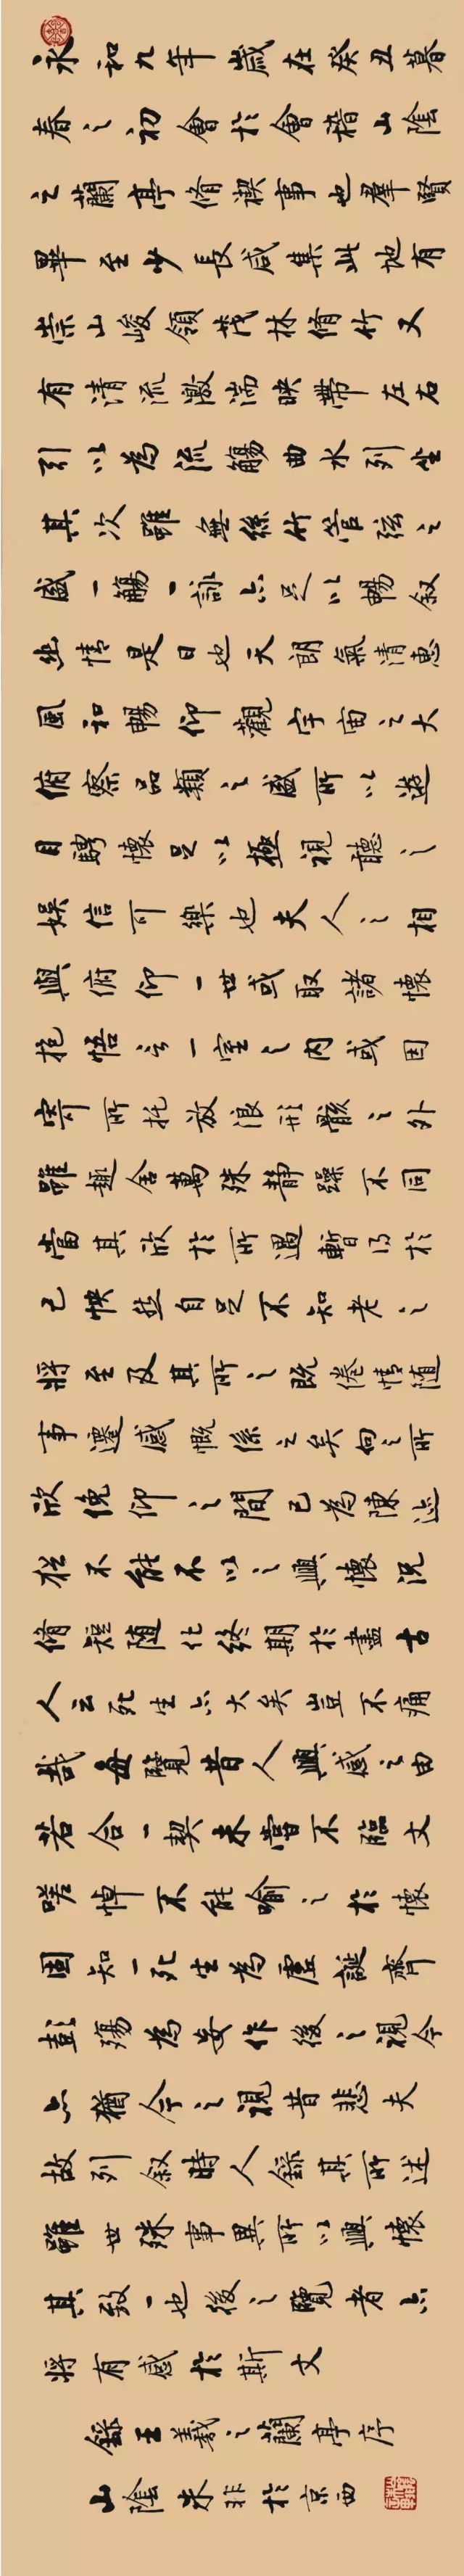 永和九年歲在癸丑暮
春之初會於會稽山陰
之蘭亭脩禊事也羣賢
畢至少長咸集此地有
崇山峻領茂林脩竹又
有清流激湍映帶左右
引以為流觴曲水列坐
其次雖無絲竹管弦之
盛一觴一詠亦足以暢叙
幽情是日也天朗氣清惠
風和暢仰觀宇宙之大
俯察品類之盛所以遊
目騁懷足以極視聽之
娛信可樂也夫人之相
與俯仰一世或取諸懷
抱悟言一室之內或因
寄所托放浪形骸之外
雖趣舍萬殊靜躁不同
當其欣於所遇暫得於
己快然自足不知老之
將至及其所之既倦情隨
事遷感慨係之矣向之所
欣俛仰之間已為陳迹
猶不能不以之興懷況
脩短隨化終期於盡古
人云死生亦大矣豈不痛
哉每覽昔人興感之由
若合一契未嘗不臨文
嗟悼不能喻之於懷
固知一死生為虛誕齊
彭殤為妄作後之視今
亦猶今之視昔悲夫
故列叙時人錄其所述
雖世殊事異所以興懷
其致一也後之覽者亦
將有感於斯文
錄王羲之蘭亭序
山陰朱非於京西